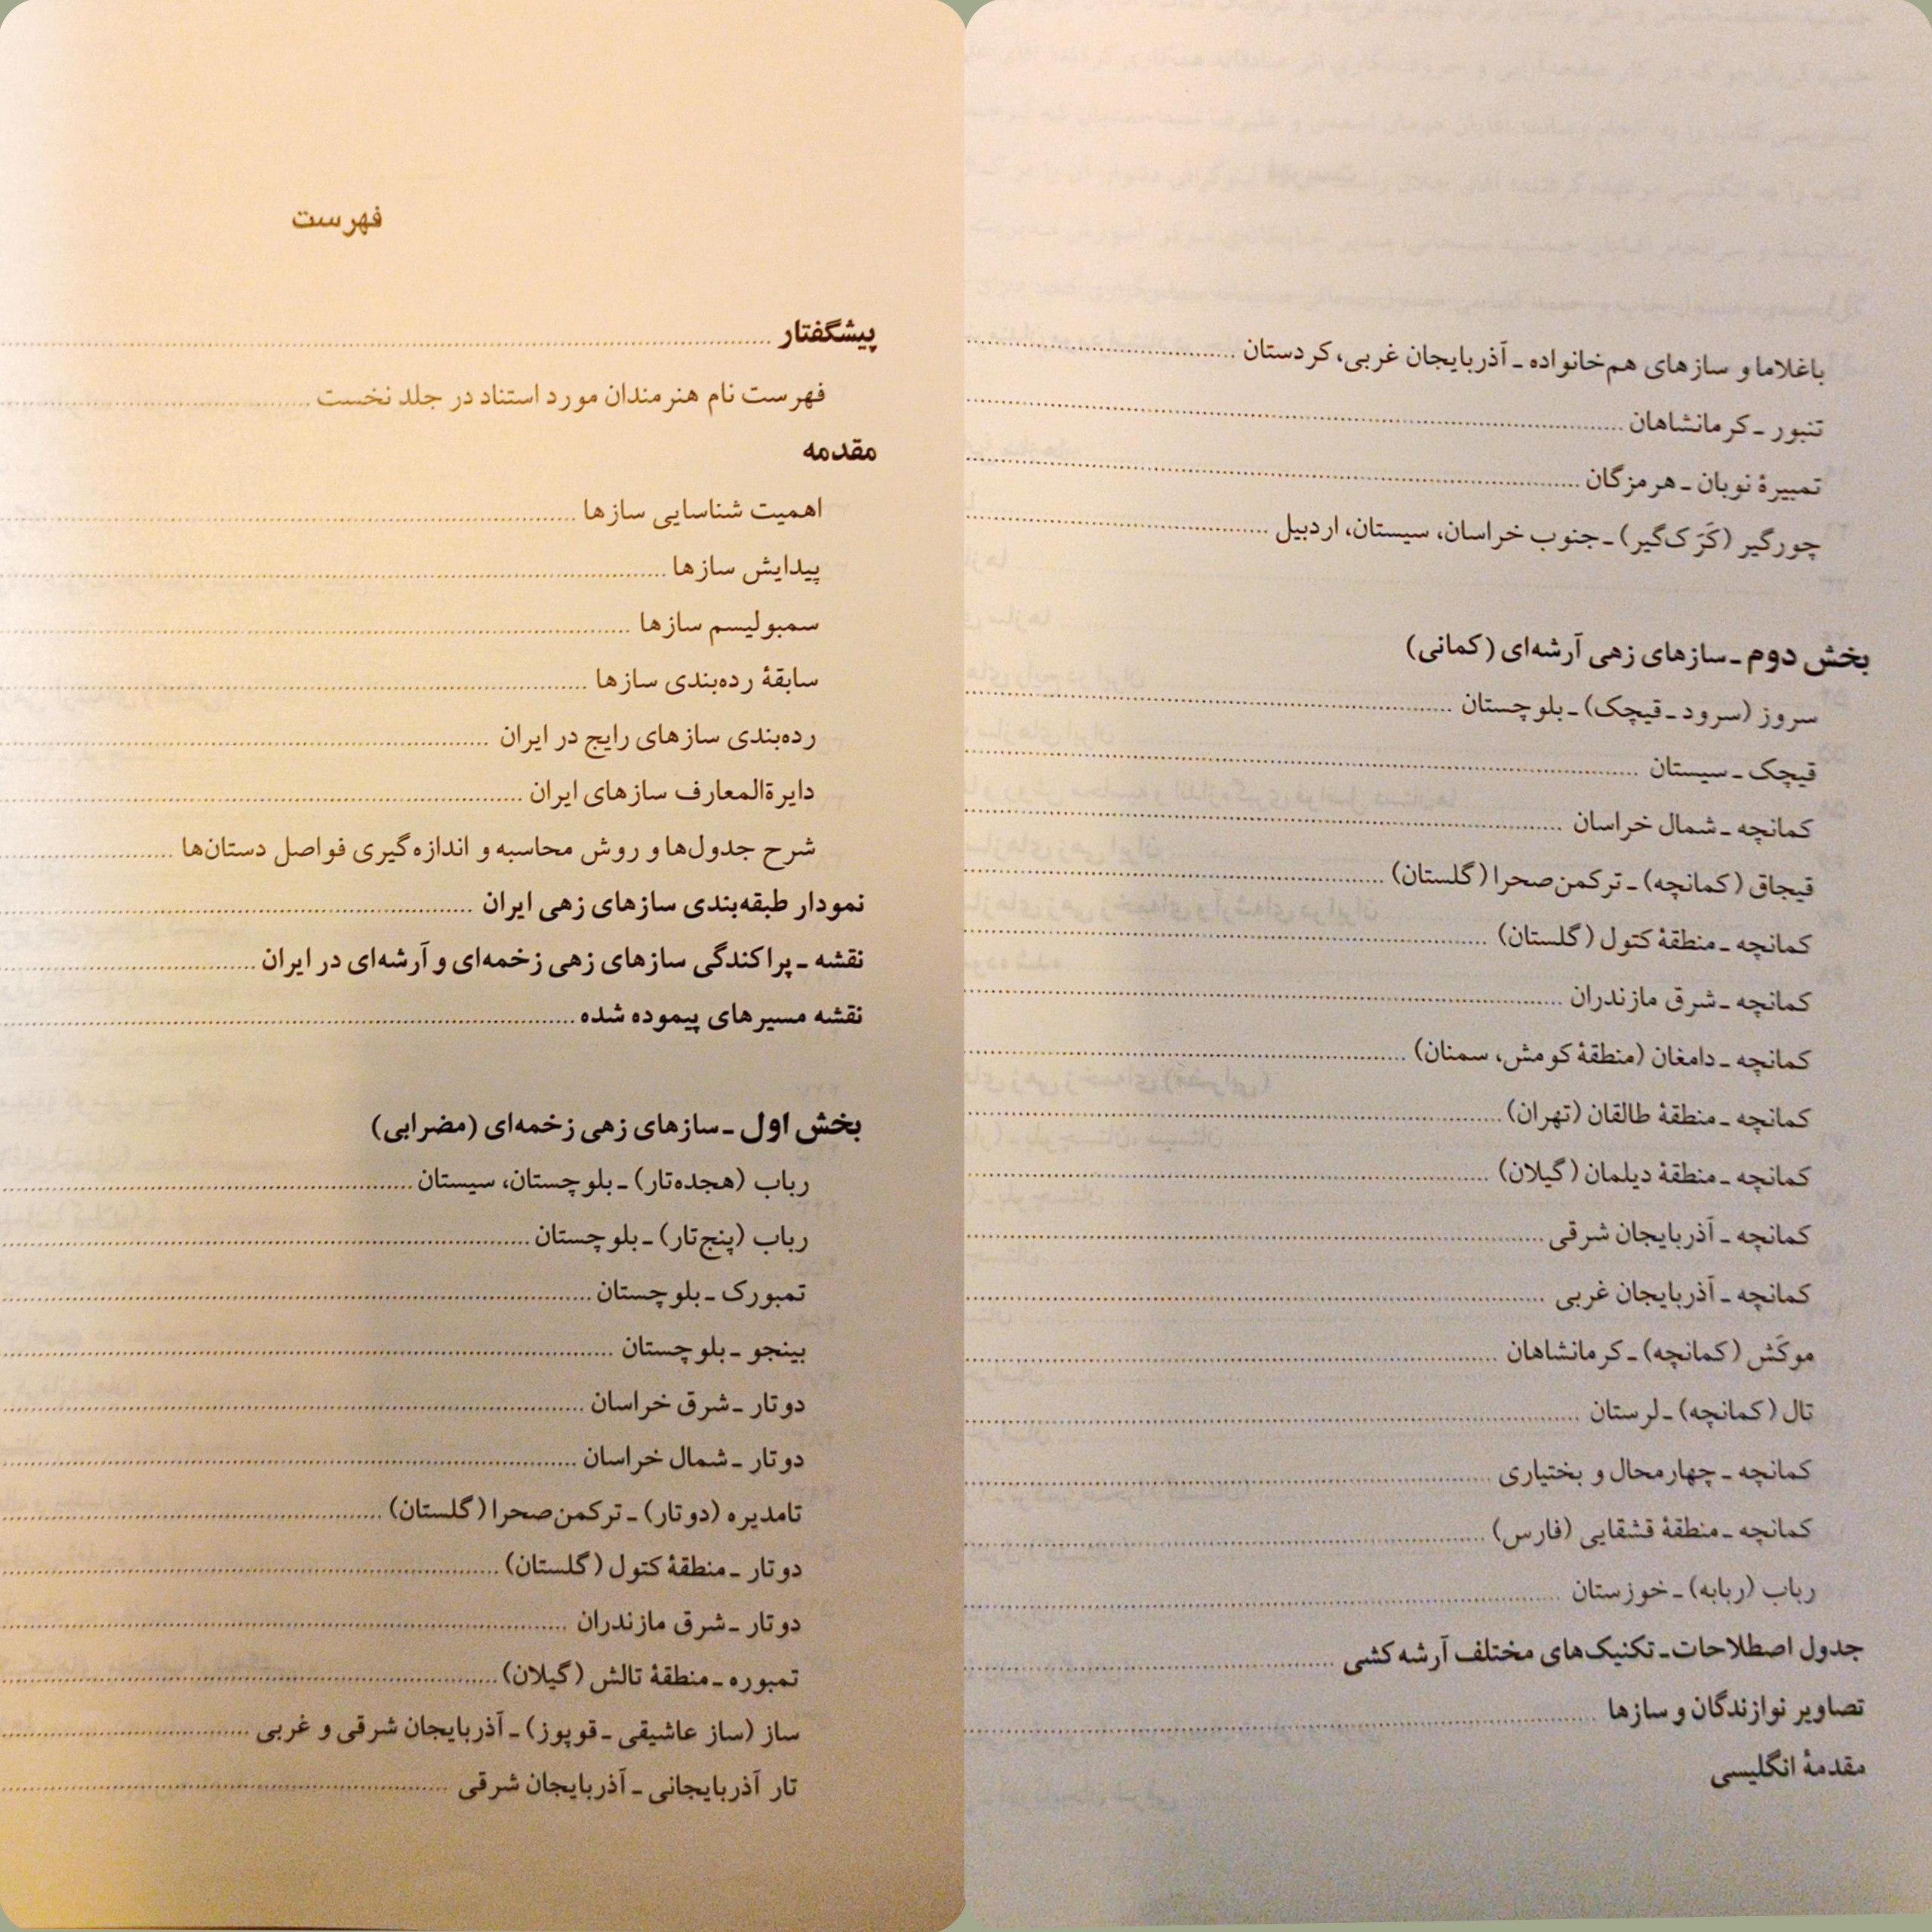 فهرست
پیشگفتار
فهرست نام هنرمندان مورد استناد در جلد نخست
مقدمه
اهمیت شناسایی سازها
پیدایش سازها
سمبولیسم سازها
سابقهٔ رده‌بندی سازها
رده‌بندی سازهای رایج در ایران
دایرةالمعارف سازهای ایران
شرح جدول‌ها و روش محاسبه و اندازه‌گیری فواصل دستان‌ها
نمودار طبقه‌بندی سازهای زهی ایران
نقشه ـ پراکندگی سازهای زهی زخمه‌ای و آرشه‌ای در ایران
نقشه مسیرهای پیموده شده
بخش اول ـ سازهای زهی زخمه‌ای (مضرابی)
رباب (هجده‌تار) ـ بلوچستان، سیستان
رباب (پنج‌تار) ـ بلوچستان
تمبورک ـ بلوچستان
بینجو ـ بلوچستان
دوتار ـ شرق خراسان
دوتار ـ شمال خراسان
تامدیره (دوتار) ـ ترکمن‌صحرا (گلستان)
دوتار ـ منطقهٔ کتول (گلستان)
دوتار ـ شرق مازندران
تمبوره ـ منطقهٔ تالش (گیلان)
ساز (ساز عاشیقی ـ قوپوز) ـ آذربایجان شرقی و غربی
تار آذربایجانی ـ آذربایجان شرقی
باغلاما و سازهای هم‌خانواده ـ آذربایجان غربی، کردستان
تنبور ـ کرمانشاهان
تمبیرهٔ نوبان ـ هرمزگان
چورگیر (کَرَک‌گیر) ـ جنوب خراسان، سیستان، اردبیل
بخش دوم ـ سازهای زهی آرشه‌ای (کمانی)
سروز (سرود ـ قیچک) ـ بلوچستان
قیچک ـ سیستان
کمانچه ـ شمال خراسان
قیجاق (کمانچه) ـ ترکمن‌صحرا (گلستان)
کمانچه ـ منطقهٔ کتول (گلستان)
کمانچه ـ شرق مازندران
کمانچه ـ دامغان (منطقهٔ کومش، سمنان)
کمانچه ـ منطقهٔ طالقان (تهران)
کمانچه ـ منطقهٔ دیلمان (گیلان)
کمانچه ـ آذربایجان شرقی
کمانچه ـ آذربایجان غربی
موکَش (کمانچه) ـ کرمانشاهان
تال (کمانچه) ـ لرستان
کمانچه ـ چهارمحال و بختیاری
کمانچه ـ منطقهٔ قشقایی (فارس)
رباب (ربابه) ـ خوزستان
جدول اصطلاحات ـ تکنیک‌های مختلف آرشه‌کشی
تصاویر نوازندگان و سازها
مقدمهٔ انگلیسی